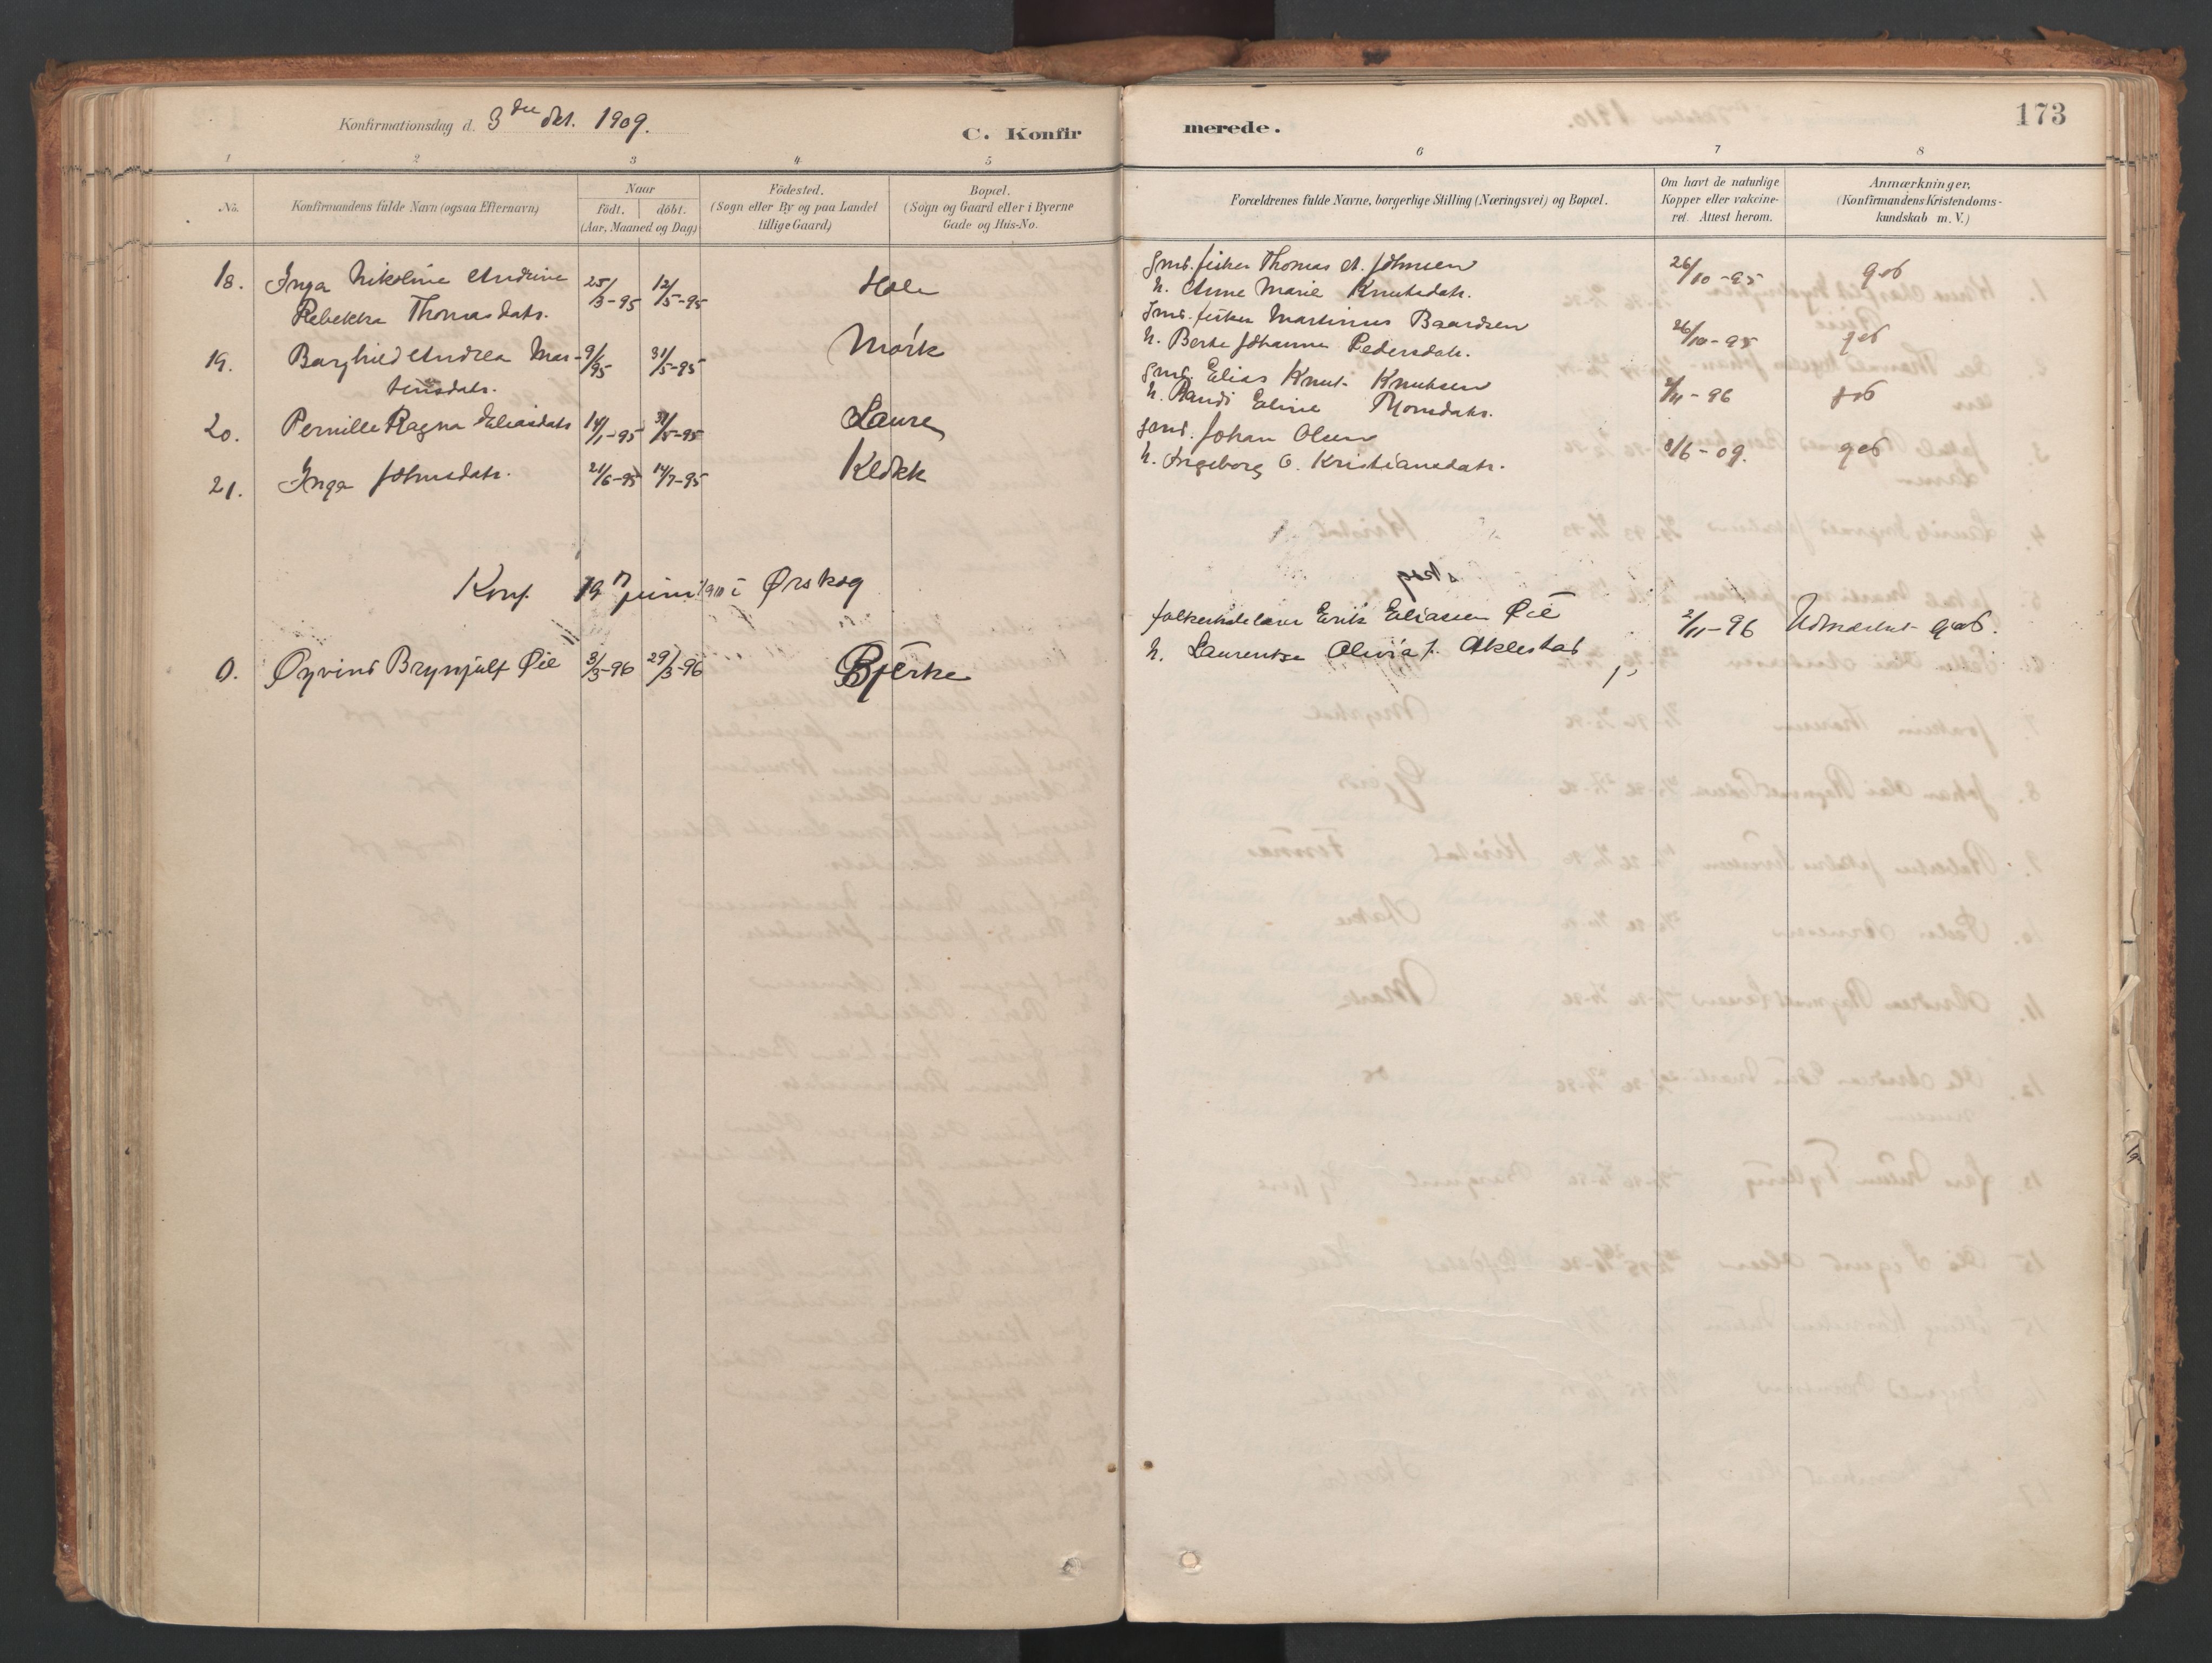 Konfirmationsdag d. 3die Okt. 1909.
C. Konfir
merede.
173
1 2 3 4 5 6 7 8
No.
Konfirmandens fulde Navn (ogsaa Efternavn)
Naar
födt. döbt.
(Aar, Maaned og Dag)
Födested.
(Sogn eller By og paa Landet
tillige Gaard)
Bopæl.
(Sogn og Gaard eller i Byerne
Gade og Hus-No.
Forældrenes fulde Navne, borgerlige Stilling (Næringsvei) og Bopæl.
Om havt de naturlige
Kopper eller vakcine-
ret. Attest herom.
Anmærkninger.
(Konfirmandens Kristendoms-
kundskab m. V.)
18. Inga Nikoline Andrine 25/3-95 12/5-95 Hole
Rebekka Thomasdatr.
gmd. fisker Thomas A. Johnsen 26/10-95 god
h. Anne Marie Knutsdatr.
19. Borghild Andrea Mar- 9/5 95 31/5-95 Mørk
tinsdatr.
gmd. fisker Martinus Baardsen 26/10-95 god
h. Berte Johanne Pedersdatr.
20. Pernille Ragna Eliasdatr 14/1-95 31/5-95 Laure
gmd. Elias Knut Knutsen 2/11-96 god
h. Randi Eline Monsdatr.
21. Inga Johnsdatr. 21/6-95 14/7-95 Klokk
gmd. Johan Olsen 8/6-09. god
h. Ingeborg O. Kristiansdatr.
Konf. 19 juni 1910 i Ørskog
0. Øyvind Brynjulf Øie 3/3-96 29/3-96 Bjerke
folkeskolelærer Erik Eliassen Øie 2/11-96 Udmærket god.
h. Laurentse Olivia f. Aklestad